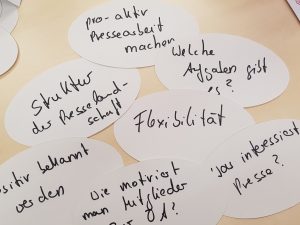 pro-aktiv
Pressearbeit
machen
Welche
Aufgaben gibt
es?
Struktur
der Presseland-
schaft
Flexibilität
positiv bekannt
werden
Wie motiviert
man Mitglieder
Was interessiert
Presse?